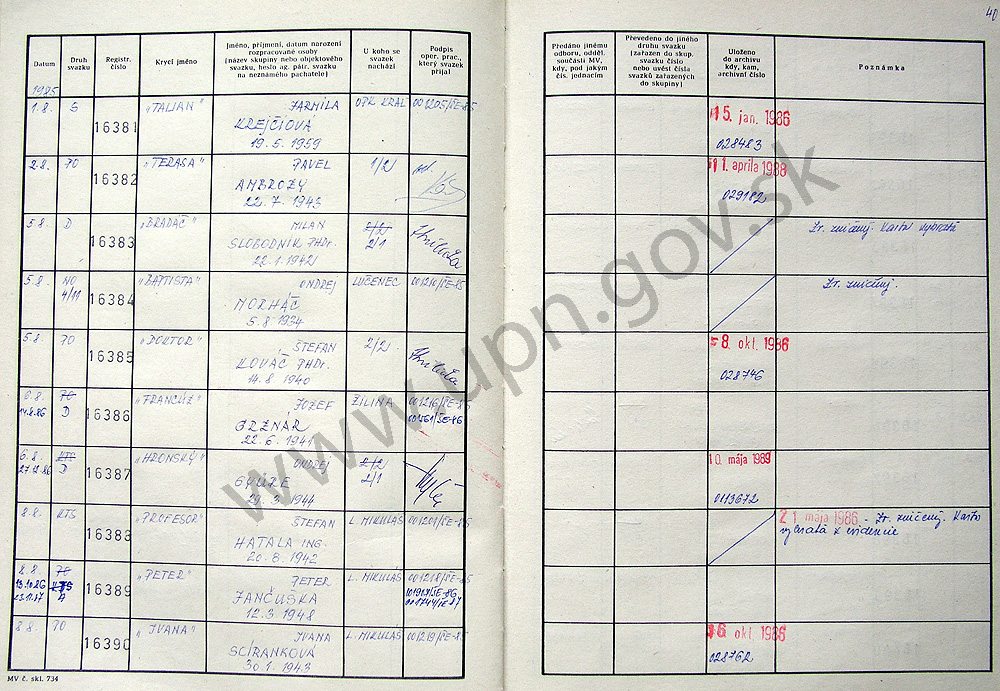 40
Datum
Druh svazku
Registr. číslo
Krycí jméno
Jméno, příjmení, datum narození
rozpracované osoby
(název skupiny nebo objektového
svazku, heslo ag. pátr. svazku
na neznámého pachatele)
U koho se
svazek
nachází
Podpis
oper. prac.,
který svazek
přijal
Předáno jinému
odboru, odděl.
součásti MV,
kdy, pod jakým
čís. jednacím
Převedeno do jiného
druhu svazku
(zařazen do skup.
svazku číslo
nebo uvést čísla
svazků zařazených
do skupiny)
Uloženo
do archivu
kdy, kam,
archivní číslo
Poznámka
1985
1.8. S 16381 "TALIAN" JARMILA OPR KRAL 001205/SE-85
KREJČIOVÁ
19.5.1959
15. jan. 1986
028483
2.8. PO 16382 "TERASA" PAVEL 1/2
AMBROZY
22.7.1943
11. apríla 1988
029182
5.8. D 16383 "BRADÁČ" MILAN 2/2
SLOBODNÍK PHDr. 2/1
22.1.1942
Zr. zničený. Karta vybratá
5.8. NO 16384 "BAPTISTA" ONDREJ LUČENEC 001210/SE-85
4/11 MORHÁČ
5.8.1934
Zr. zničený.
5.8. PO 16385 "DOKTOR" ŠTEFAN 2/2
KOVÁČ PHDr.
14.8.1940
8. okt. 1986
028746
6.8. 16386 "FRANCÚZ" JOZEF ŽILINA 001216/SE-85
14.8.86 D 001561/SE-86
22.6.1941
6.8. KTS 16387 "HRONSKÝ" ONDREJ 2/2
27.12.86 D 2/1
29.3.1944
10. mája 1989
0113672
8.8. KTS 16388 "PROFESOR" ŠTEFAN L. MIKULÁŠ 001201/SE-85
HATALA ING.
20.8.1942
21. mája 1986 - Zr. zničený. Karta
vybratá z evidencie
8.8. 16389 "PETER" PETER L. MIKULÁŠ 001218/SE-85
13.10.86
23.11.87 A JANČUŠKA 001744/SE-87
12.3.1948
8.8. PO 16390 "IVANA" IVANA L. MIKULÁŠ 001219/SE-85
SCÍRANKOVÁ
30.1.1943
16. okt. 1986
028762
MV č. skl. 734
www.upn.gov.sk